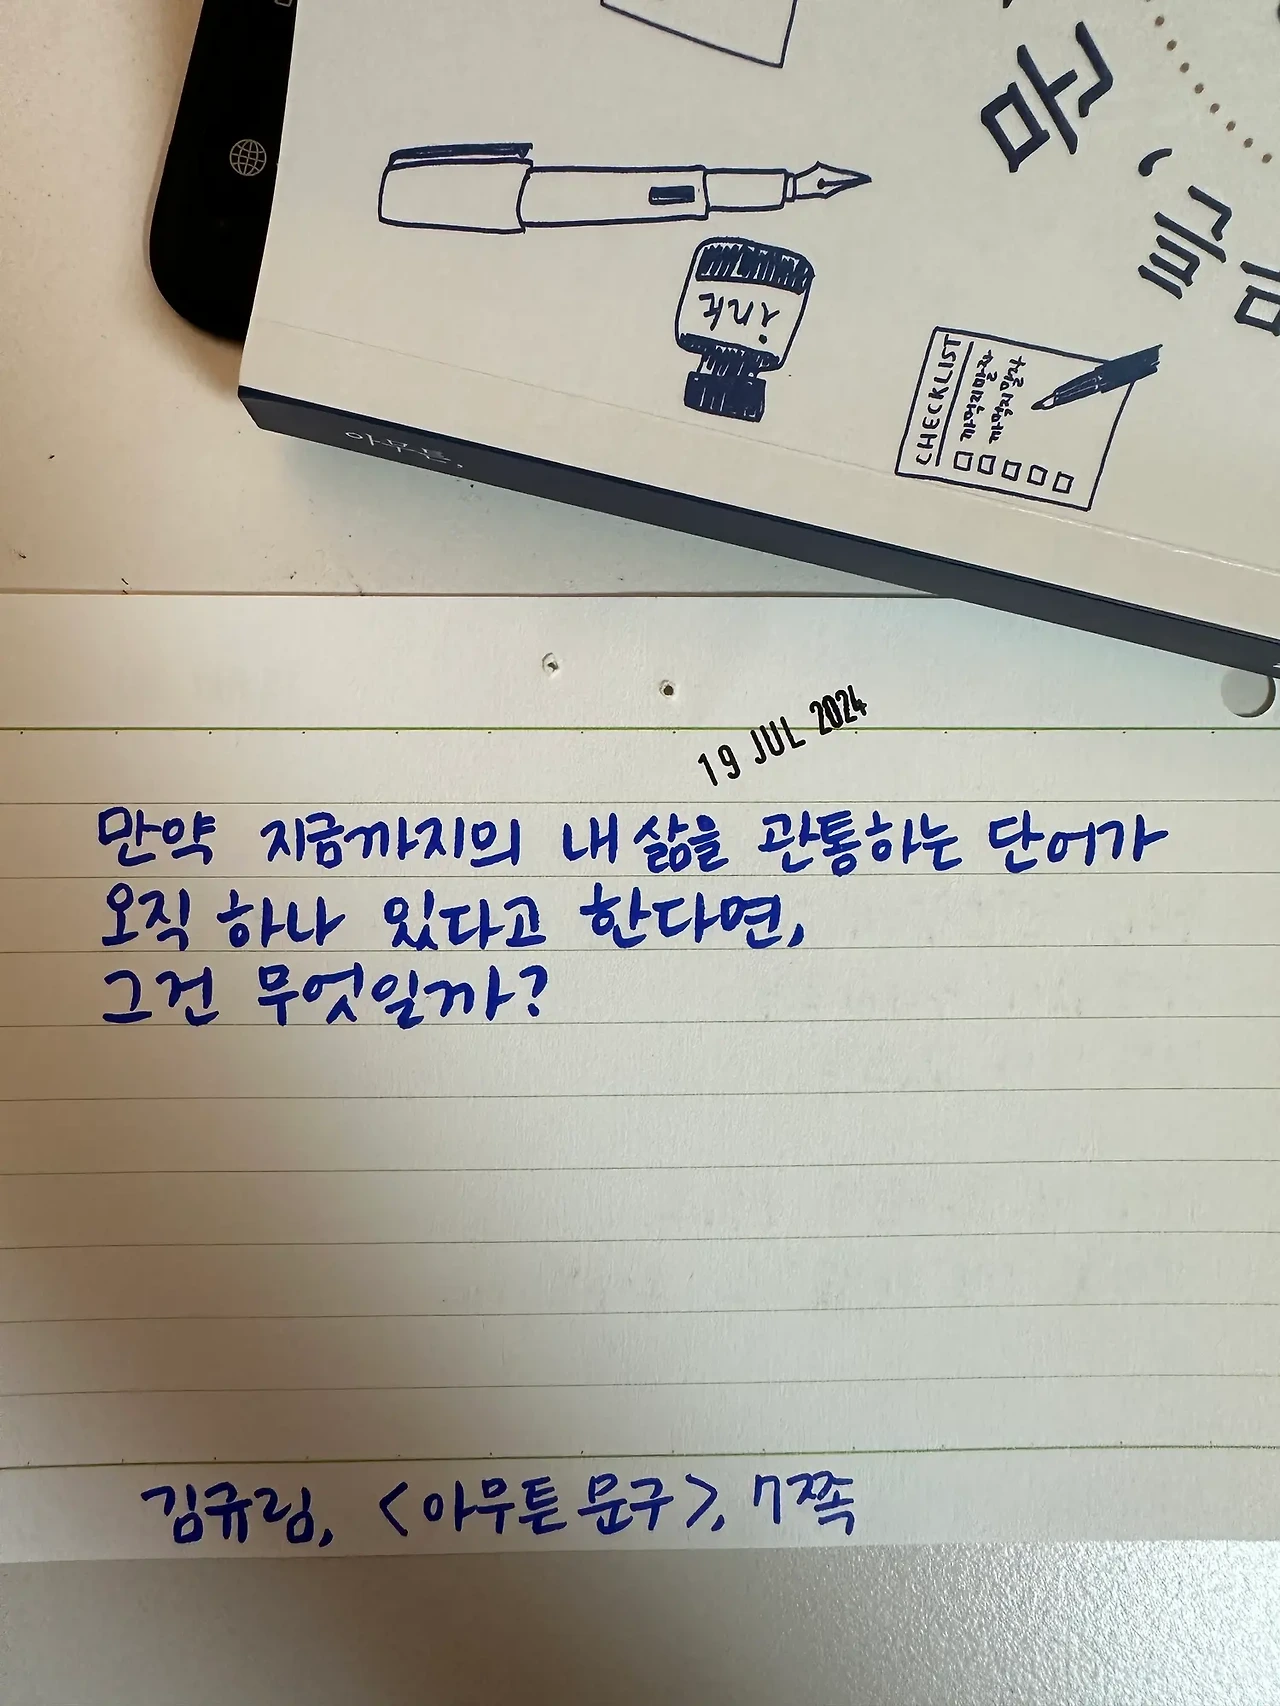 ink
CHECKLIST
아무튼,
19 JUL 2024
만약 지금까지의 내 삶을 관통하는 단어가
오직 하나 있다고 한다면,
그건 무엇일까?
김규림, <아무튼 문구>, 7쪽